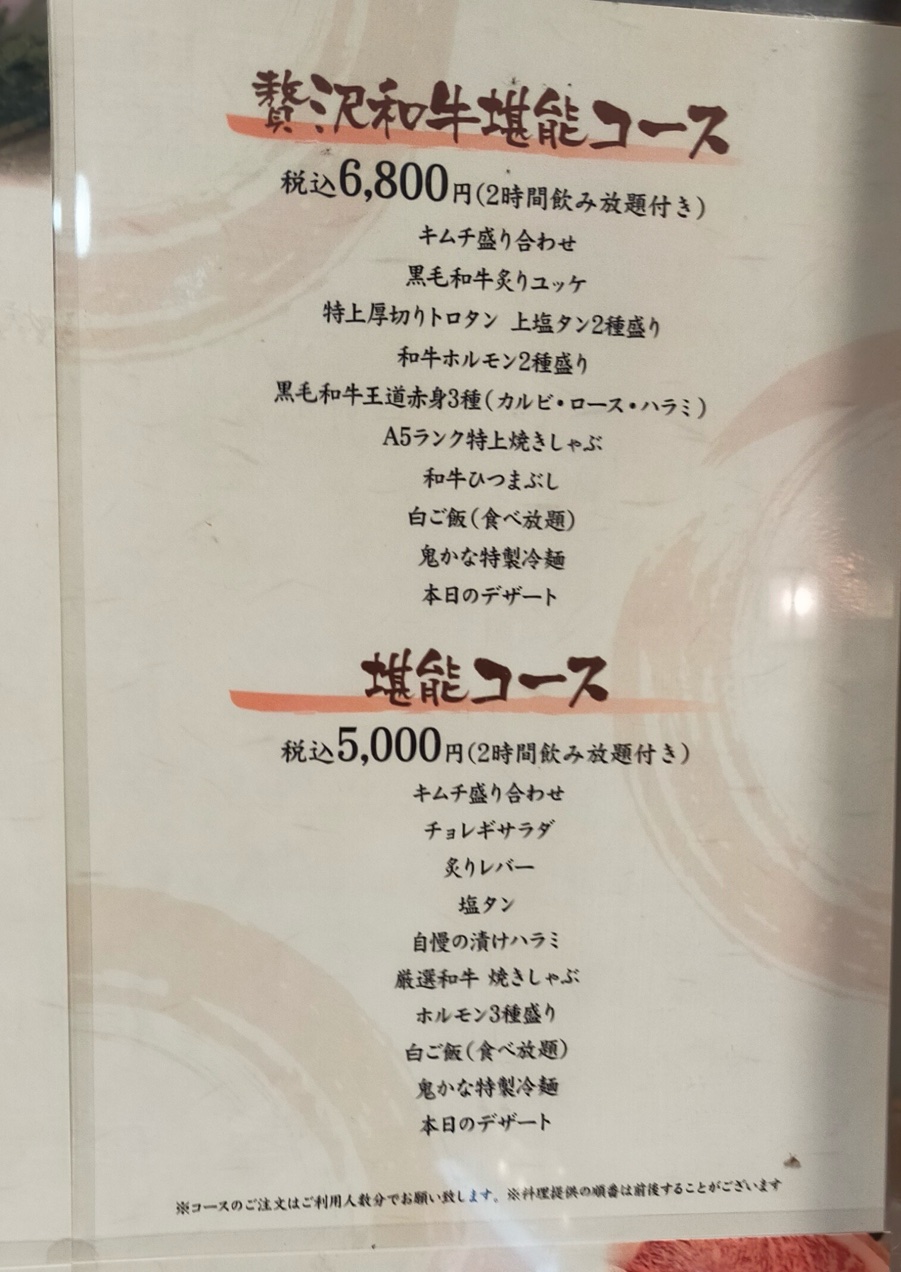 贅沢和牛堪能コース
税込6,800円(2時間飲み放題付き)
キムチ盛り合わせ
黒毛和牛炙りユッケ
特上厚切りトロタン 上塩タン2種盛り
和牛ホルモン2種盛り
黒毛和牛王道赤身3種(カルビ・ロース・ハラミ)
A5ランク特上焼きしゃぶ
和牛ひつまぶし
白ご飯(食べ放題)
鬼かな特製冷麺
本日のデザート
堪能コース
税込5,000円(2時間飲み放題付き)
キムチ盛り合わせ
チョレギサラダ
炙りレバー
塩タン
自慢の漬けハラミ
厳選和牛 焼きしゃぶ
ホルモン3種盛り
白ご飯(食べ放題)
鬼かな特製冷麺
本日のデザート
※コースのご注文はご利用人数分でお願い致します。※料理提供の順番は前後することがございます